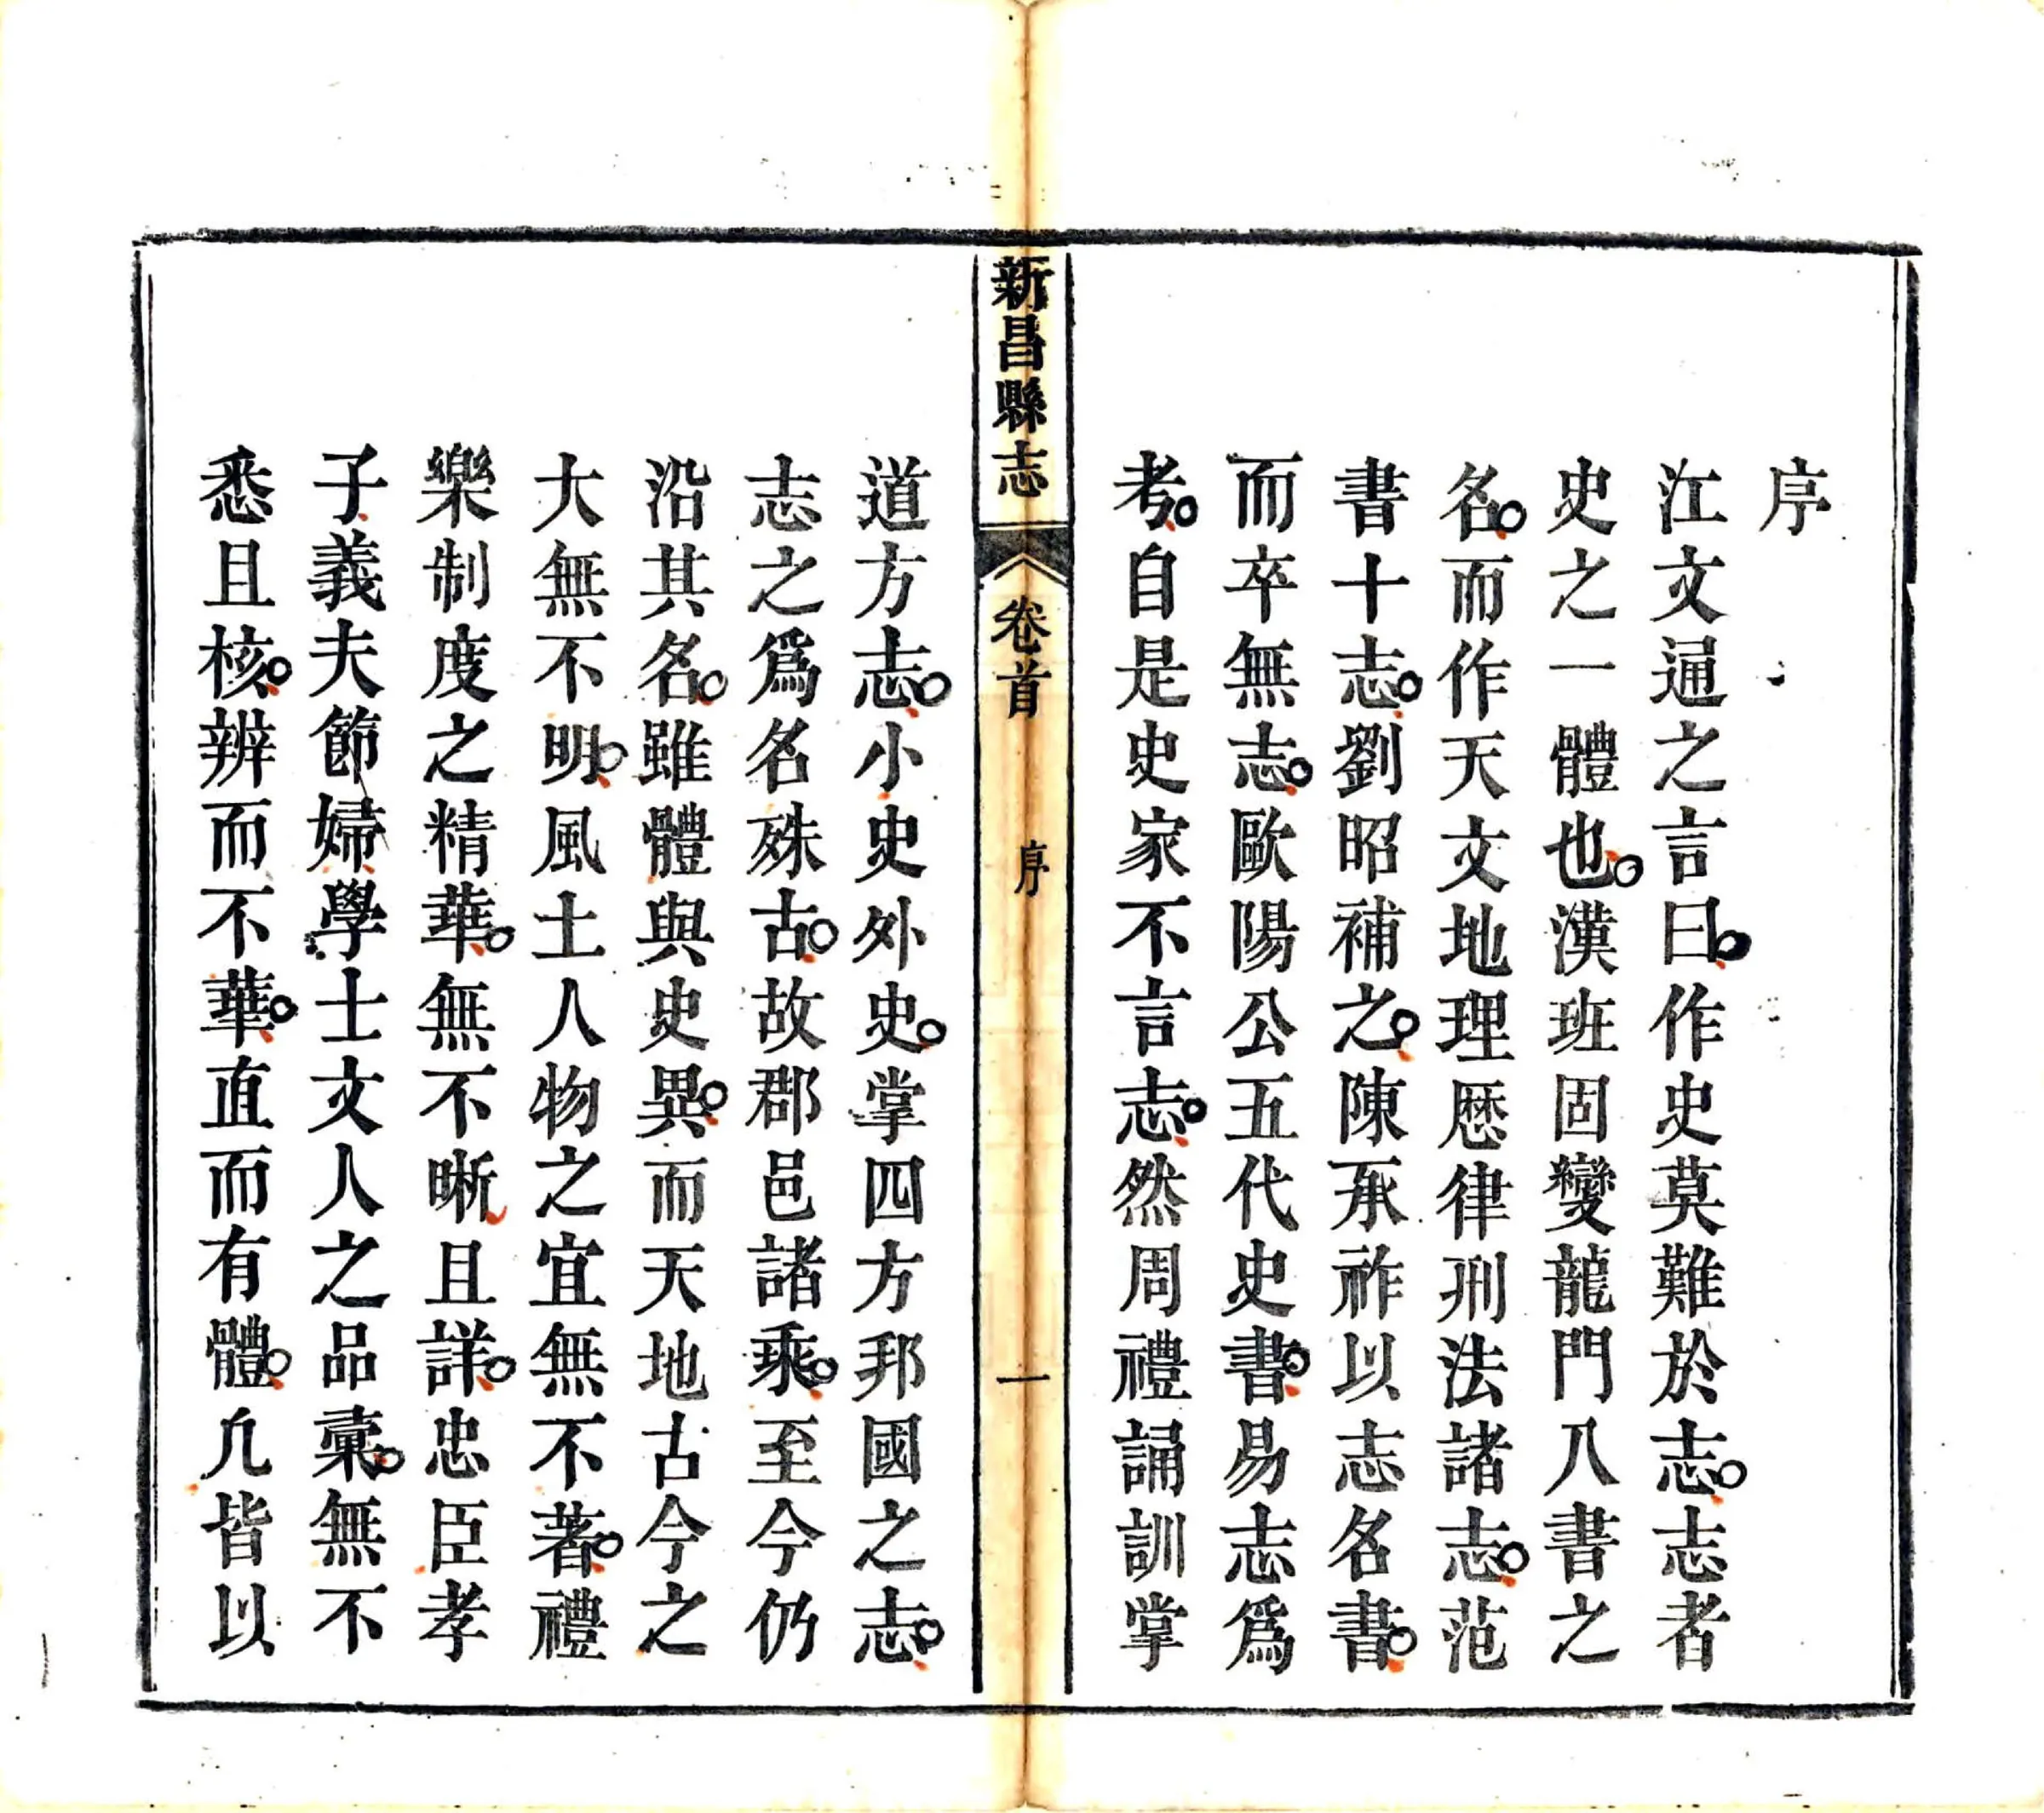 序
江文通之言曰作史莫難於志志者
史之一體也漢班固變龍門八書之
名而作天文地理厯律刑法諸志范
書十志劉昭補之陳承祚以志名書
而卒無志歐陽公五代史書易志爲
考自是史家不言志然周禮誦訓掌
新昌縣志 卷首 序 一
道方志小史外史掌四方邦國之志
志之爲名殊古故郡邑諸乘至今仍
沿其名雖體與史異而天地古今之
大無不明風土人物之宜無不著禮
樂制度之精華無不晰且詳忠臣孝
子義夫節婦學士文人之品彚無不
悉且核辨而不華直而有體凢皆以